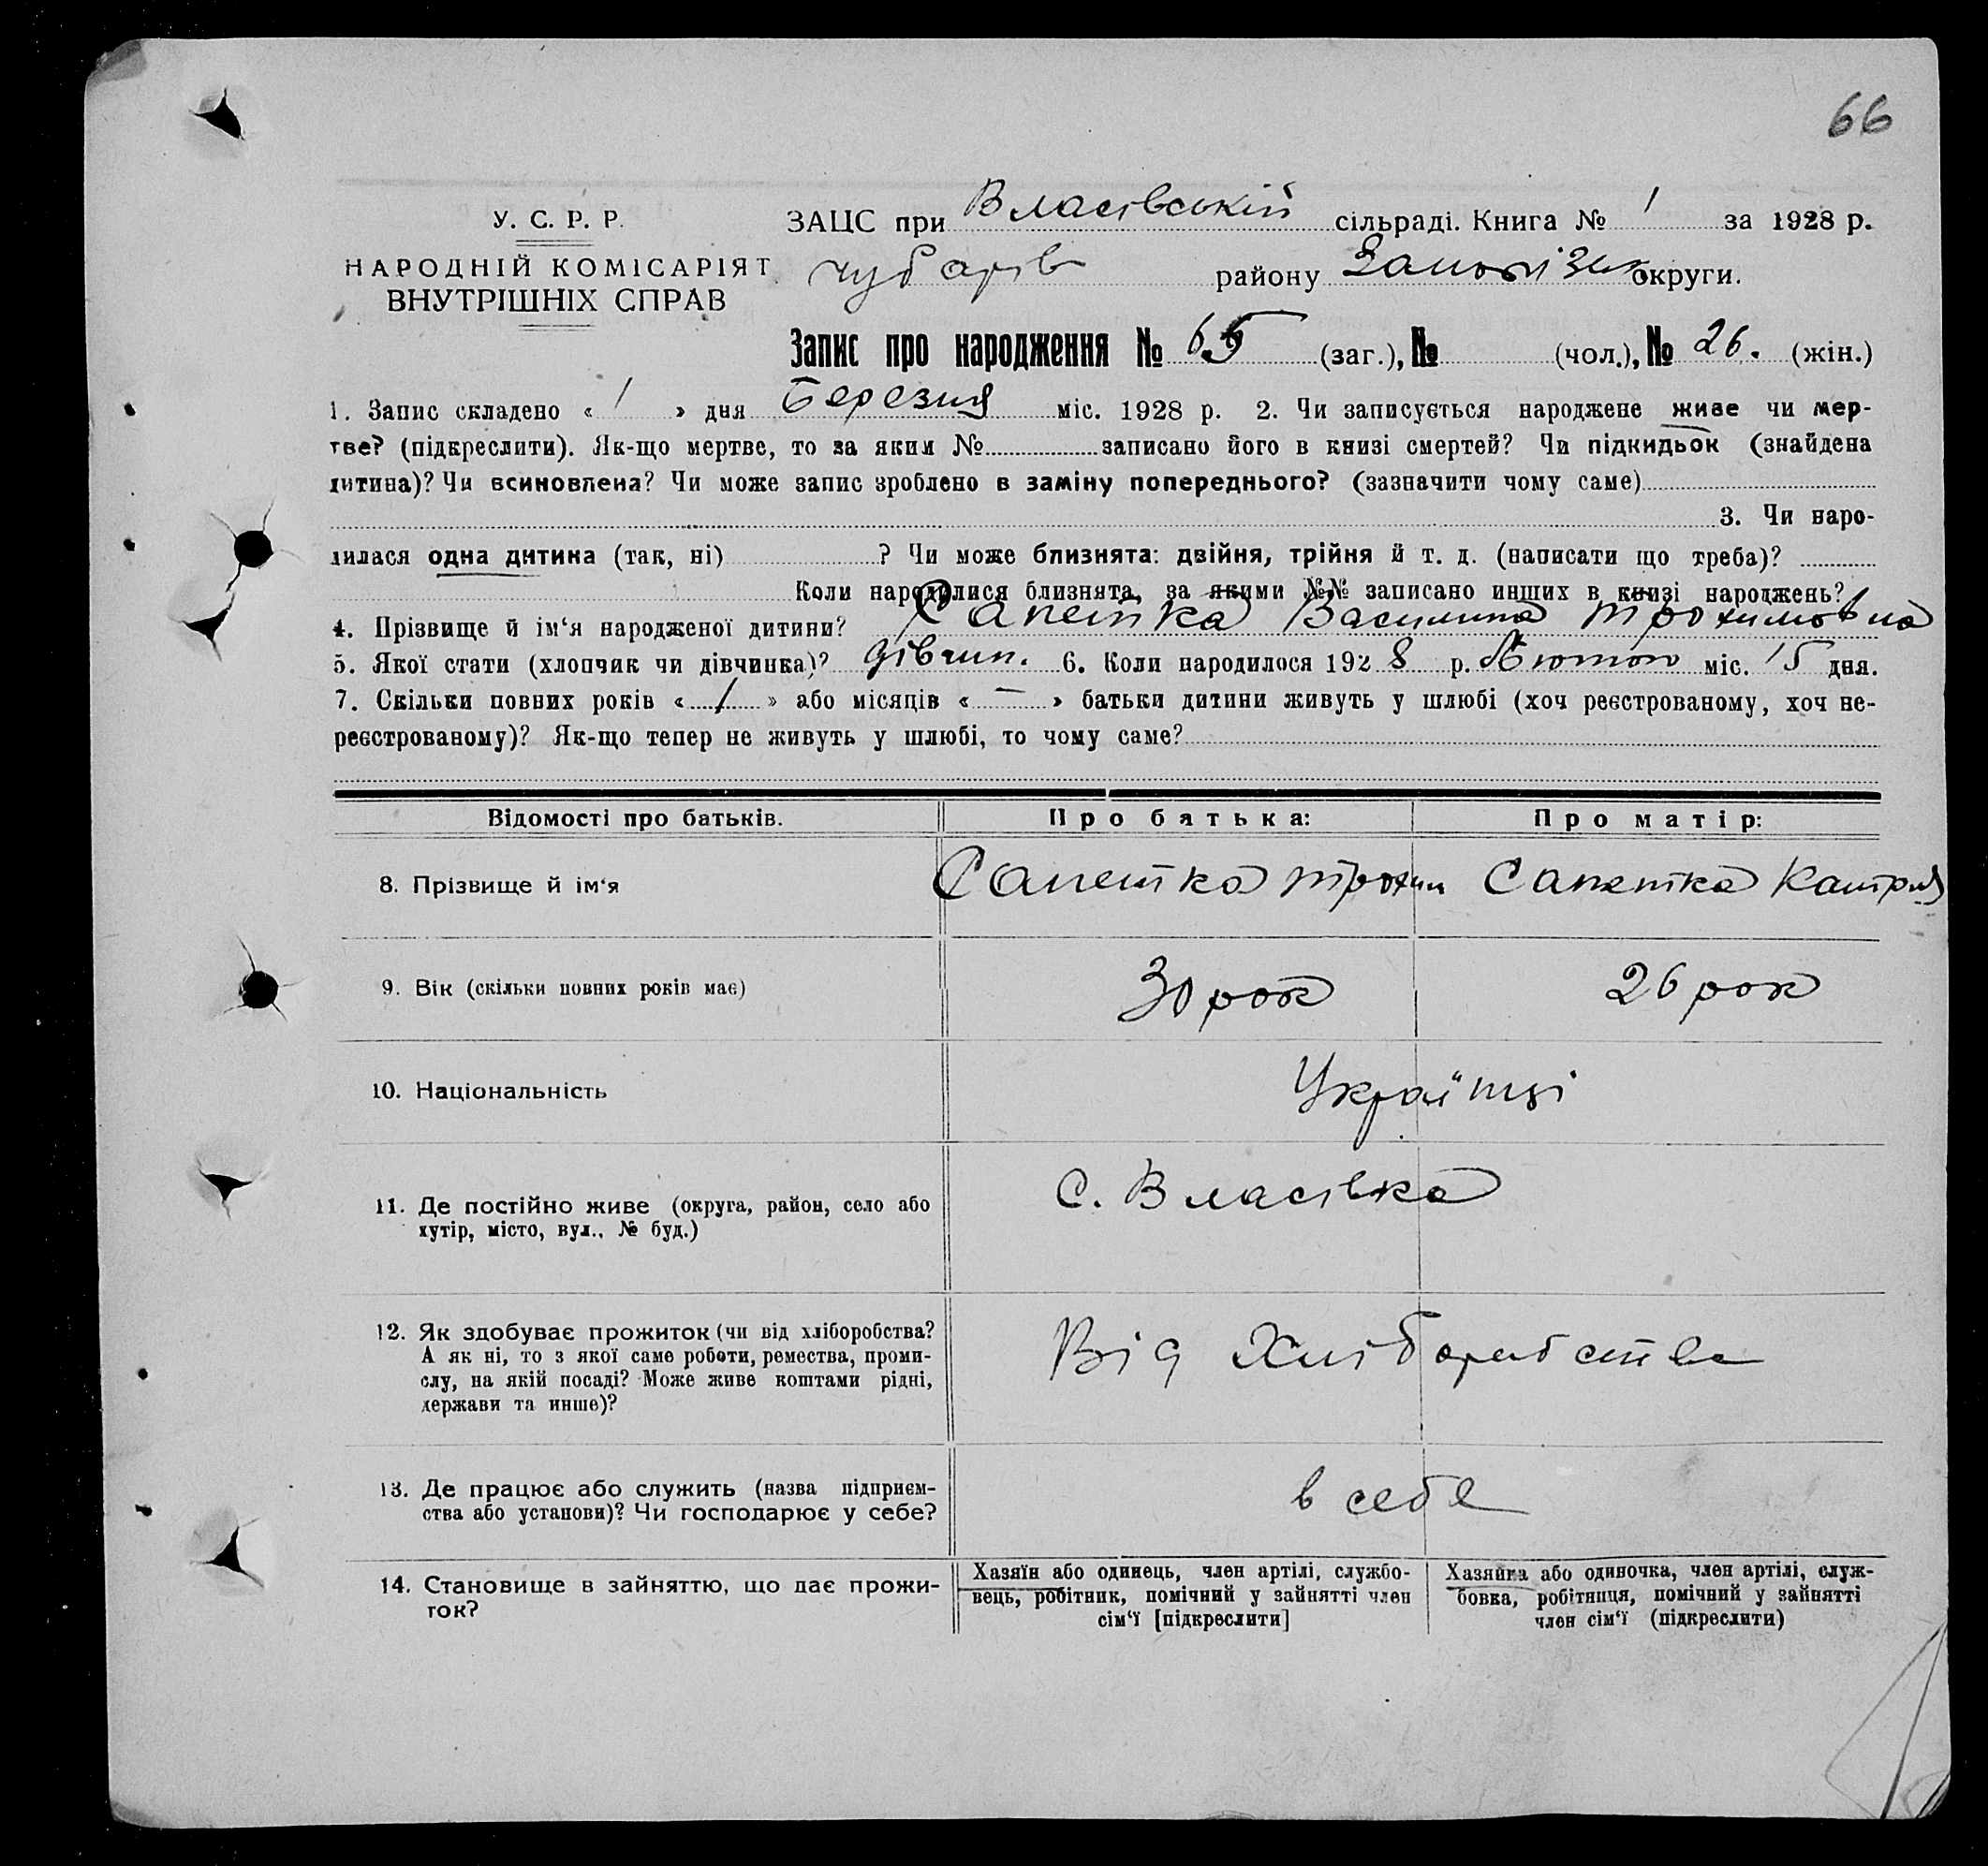 66
У. С. Р. Р.
НАРОДНІЙ КОМІСАРІЯТ
ВНУТРІШНІХ СПРАВ
ЗАЦС при Власівській сільраді. Книга № 1 за 1928 р.
Чубарів району Запоріз округи.
Запис про народження № 65 (заг.), № (чол.), № 26. (жін.)
1. Запис складено « 1 » дня Березня міс. 1928 р. 2. Чи записується народжене живе чи мер-
тве? (підкреслити). Як-що мертве, то за яким № записано його в книзі смертей? Чи підкидьок (знайдена
дитина)? Чи всиновлена? Чи може запис зроблено в заміну попереднього? (зазначити чому саме)
3. Чи наро-
дилася одна дитина (так, ні) ? Чи може близнята: двійня, трійня й т. д. (написати що треба)?
Коли народилися близнята, за якими №№ записано инших в книзі народжень?
4. Прізвище й ім‘я народженої дитини? Сапетка Василина Трохимовна
5. Якої стати (хлопчик чи дівчинка)? дівчин. 6. Коли народилося 1928 р. Лютого міс. 15 дня.
7. Скільки повних років « 1 » або місяців « — » батьки дитини живуть у шлюбі (хоч реєстрованому, хоч не-
реєстрованому)? Як-що тепер не живуть у шлюбі, то чому саме?
Відомості про батьків. Про батька: Про матір:
8. Прізвище й ім‘я Сапетка Трохим Сапетка Катря
9. Вік (скільки повних років має) 30 рок 26 рок
10. Національність Українці
11. Де постійно живе (округа, район, село або
хутір, місто, вул., № буд.)
С. Власівка
12. Як здобуває прожиток (чи від хліборобства?
А як ні, то з якої саме роботи, ремества, проми-
слу, на якій посаді? Може живе коштами рідні,
держави та инше)?
Від Хліборобства
13. Де працює або служить (назва підприєм-
ства або установи)? Чи господарює у себе?
в себе
14. Становище в зайняттю, що дає прожи-
ток?
Хазяїн або одинець, член артілі, службо-
вець, робітник, помічний у зайнятті член
сім‘ї [підкреслити]
Хазяйка або одиночка, член артілі, служ-
бовка, робітниця, помічний у зайнятті
член сім‘ї (підкреслити)